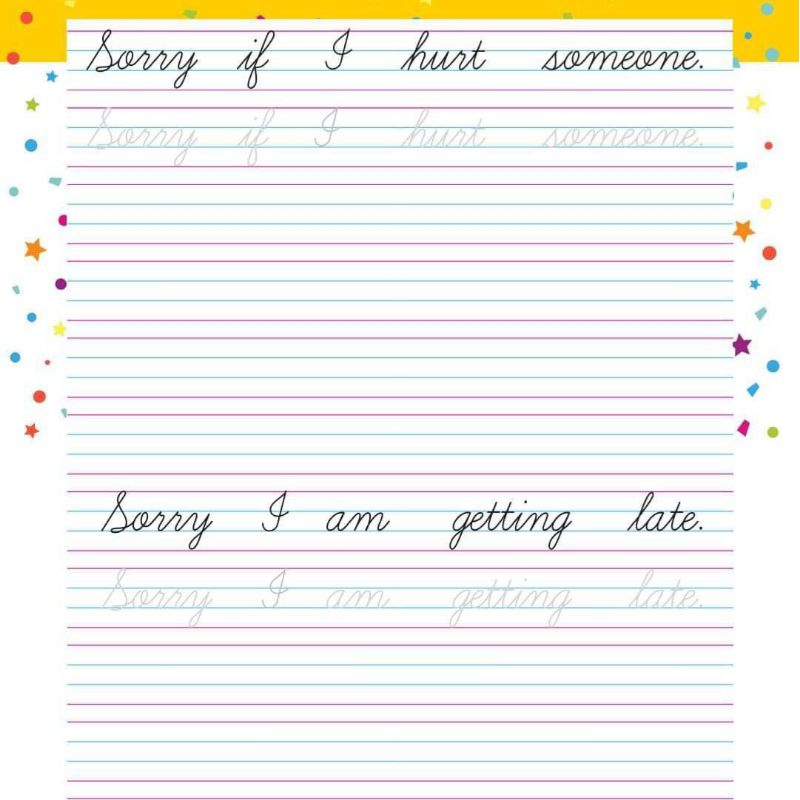 Sorry if I hurt someone.
Sorry if I hurt someone.
Sorry I am getting late.
Sorry I am getting late.